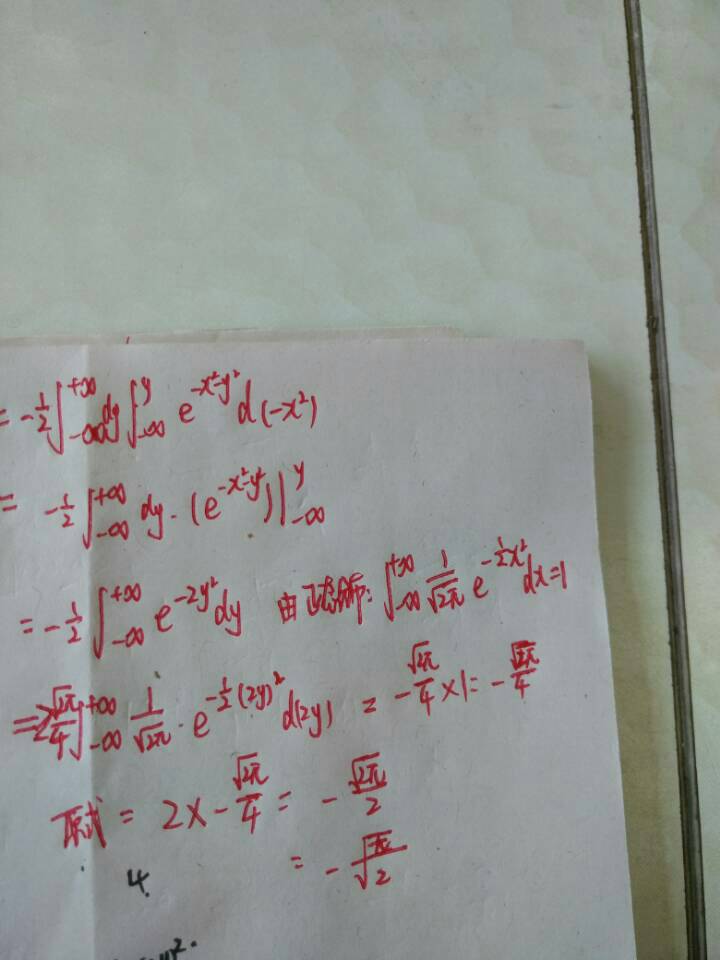 = -1/2 ∫_{-∞}^{+∞} dy ∫_{-∞}^{y} e^{-x²-y²} d(-x²)
= -1/2 ∫_{-∞}^{+∞} dy · (e^{-x²-y²}) |_{-∞}^{y}
= -1/2 ∫_{-∞}^{+∞} e^{-2y²} dy 由正态分布: ∫_{-∞}^{+∞} 1/√2π e^{-1/2 x²} dx = 1
= √2π/4 ∫_{-∞}^{+∞} 1/√2π · e^{-1/2 (2y)²} d(2y) = -√2π/4 × 1 = -√2π/4
原式 = 2 × -√2π/4 = -√2π/2
= -√π/2
4.